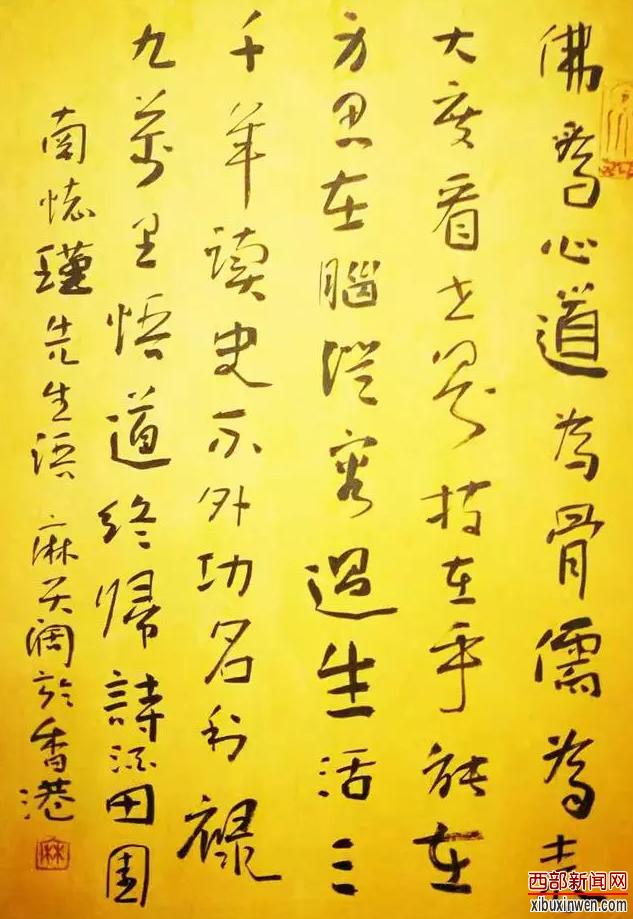 佛為心道為骨儒為表
大度看世界技在手能在
身思在腦從容過生活三
千年讀史不外功名利祿
九萬里悟道終歸詩酒田園
南懷瑾先生語 麻天闊於香港
西部新闻网
xibuxinwen.com